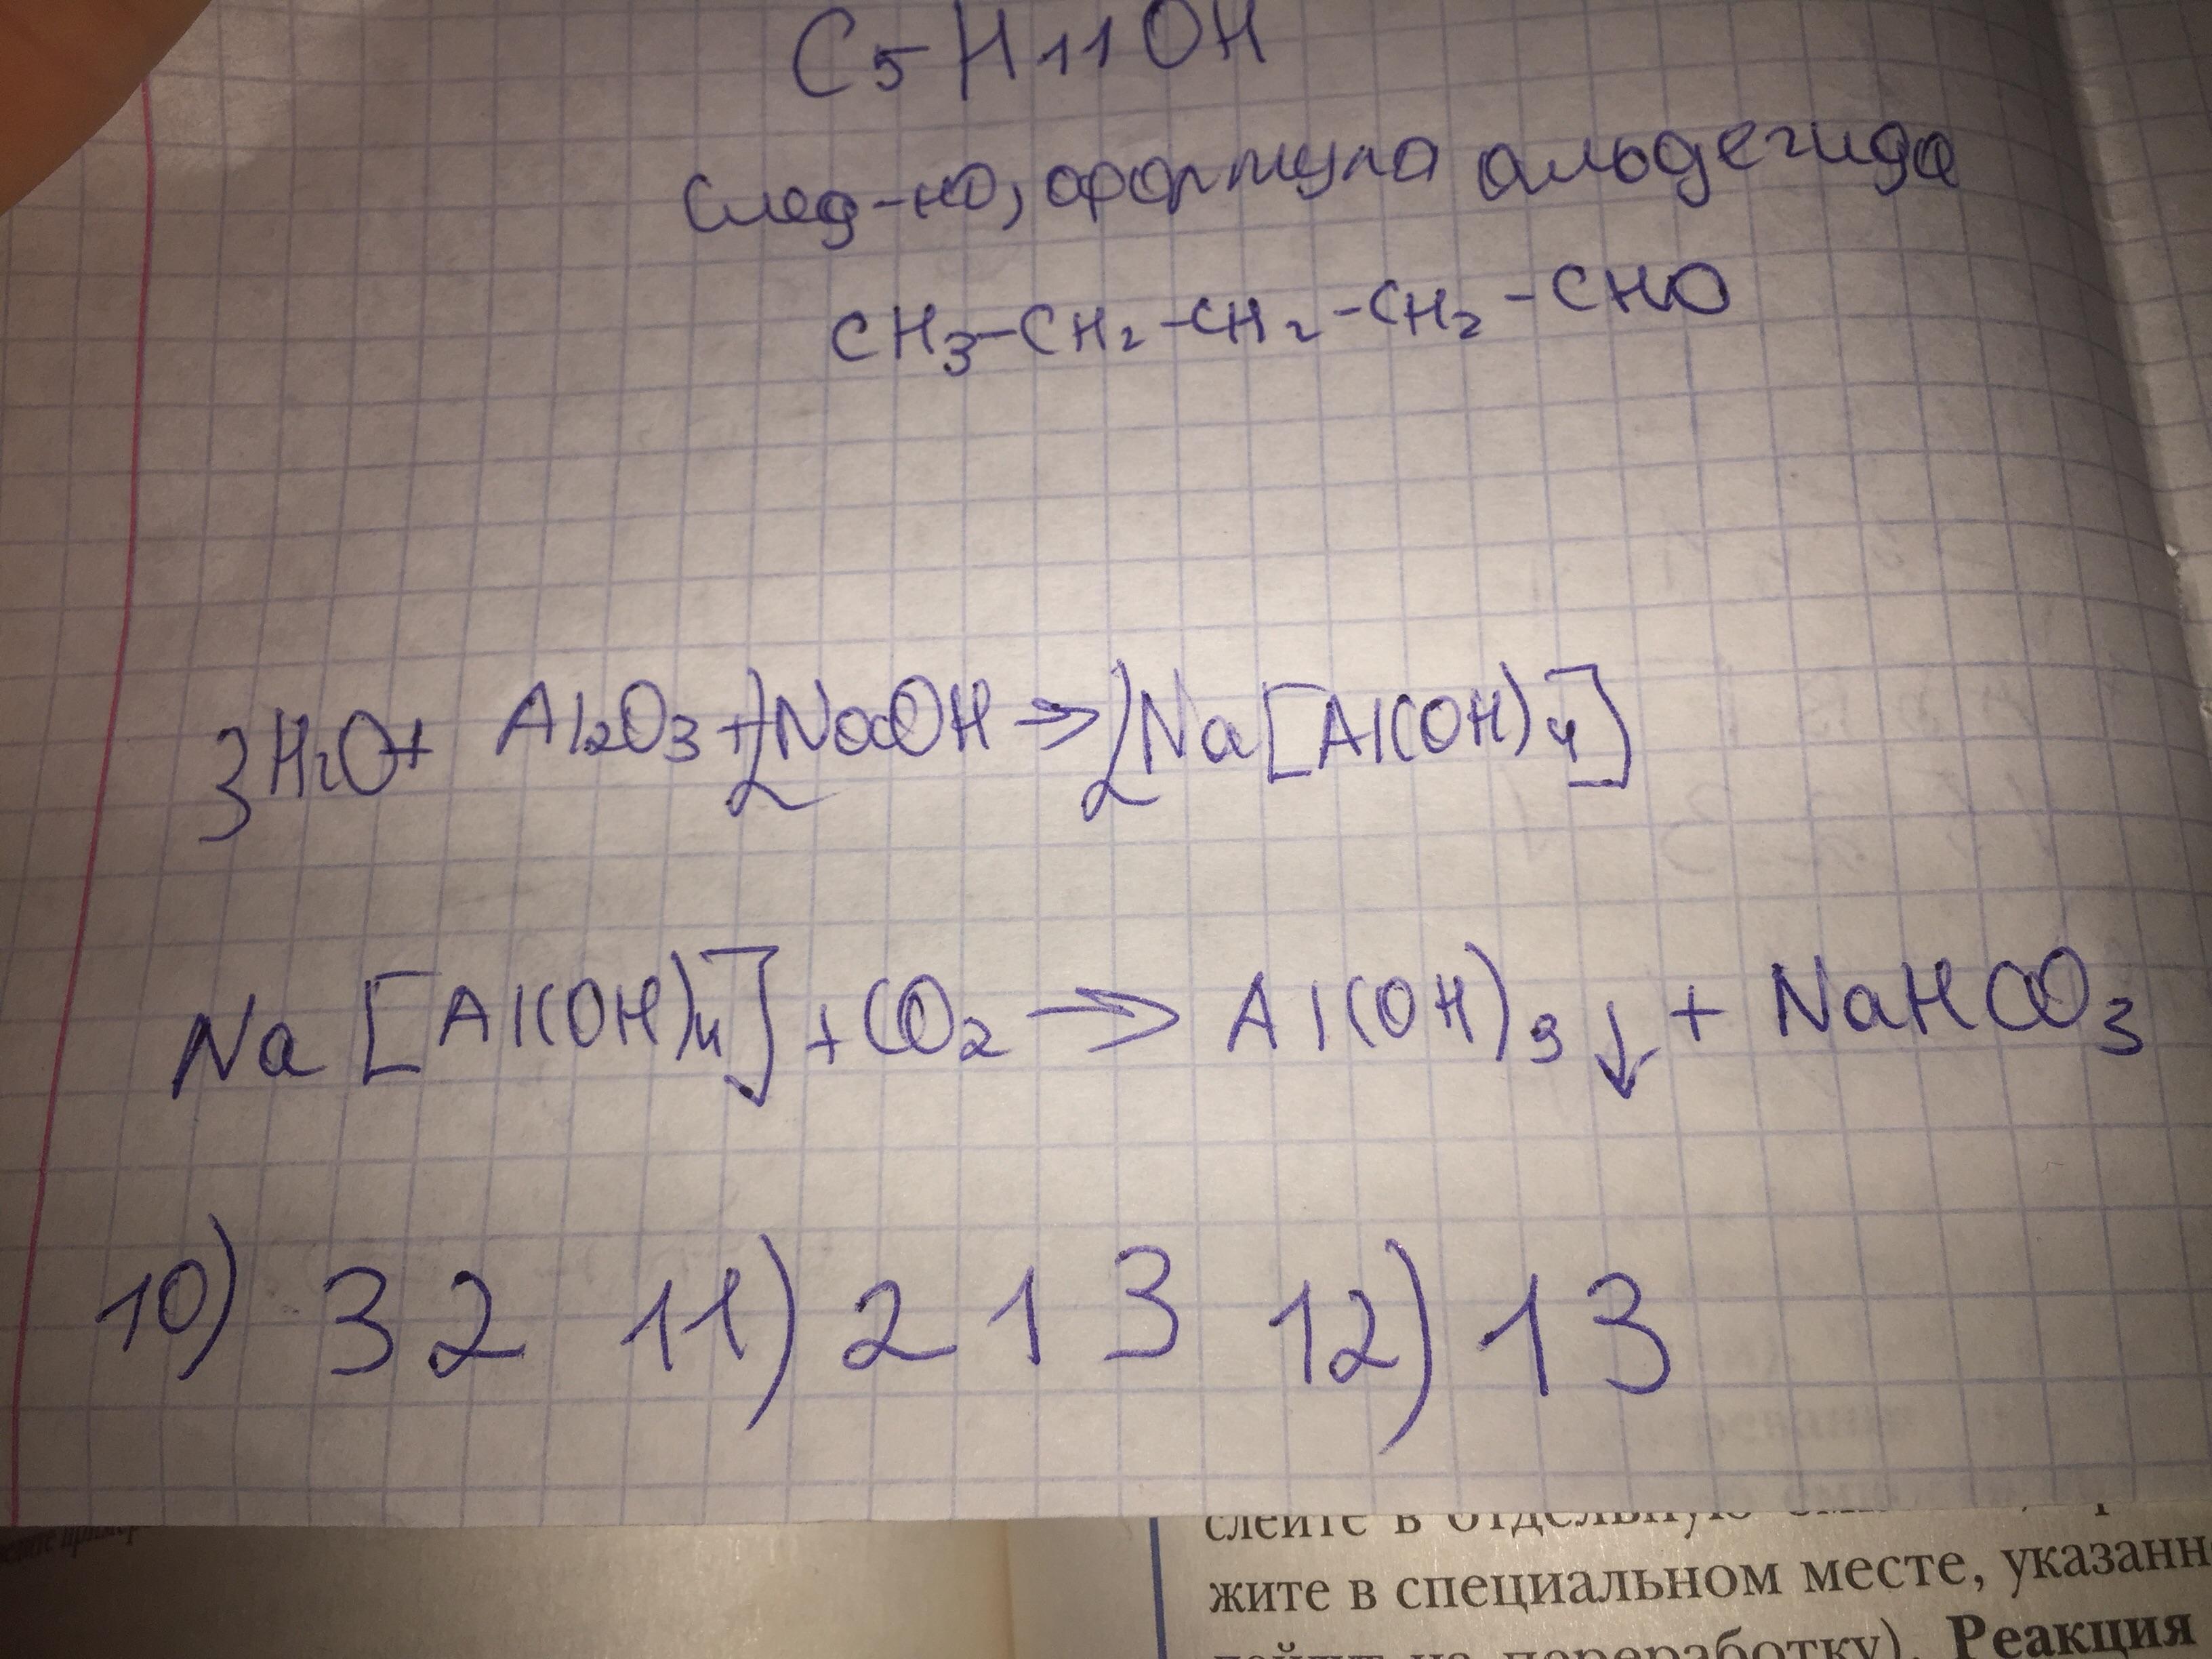 C₅H₁₁OH
След-но, формула альдегида
CH₃-CH₂-CH₂-CH₂-CHO
3H₂O+ Al₂O₃+2NaOH→2Na[Al(OH)₄]
Na[Al(OH)₄]+CO₂→Al(OH)₃↓+NaHCO₃
10) 32 11) 213 12) 13
жите в специальном месте, указанн
переработку). Реакция